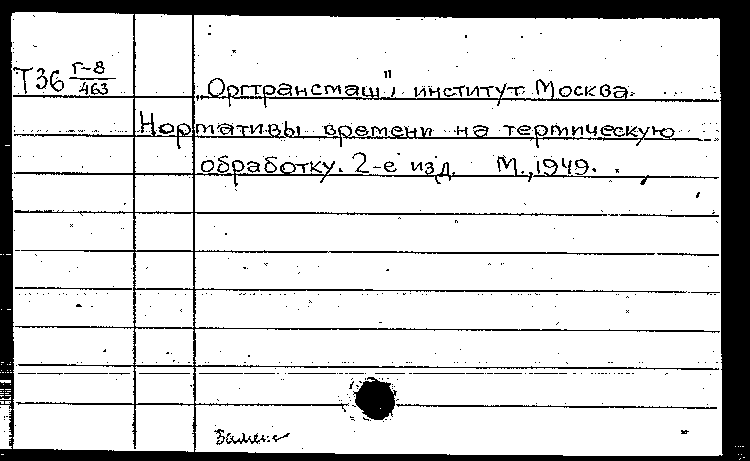 Т36 Г-8/463
„Оргтрансмаш", институт. Москва.
Нормативы времени на термическую
обработку. 2-е изд. М., 1949.